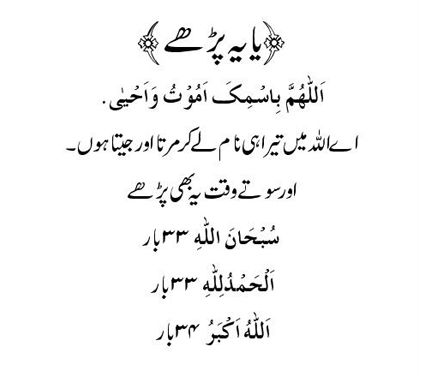 ﴿یا یہ پڑھے﴾
اَللّٰھُمَّ بِاسْمِکَ اَمُوْتُ وَاَحْیٰی.
اے اللہ میں تیرا ہی نام لے کر مرتا اور جیتا ہوں۔
اور سوتے وقت یہ بھی پڑھے
سُبْحَانَ اللّٰہِ ۳۳ بار
اَلْحَمْدُلِلّٰہِ ۳۳ بار
اَللّٰہُ اَکْبَرُ ۳۴ بار